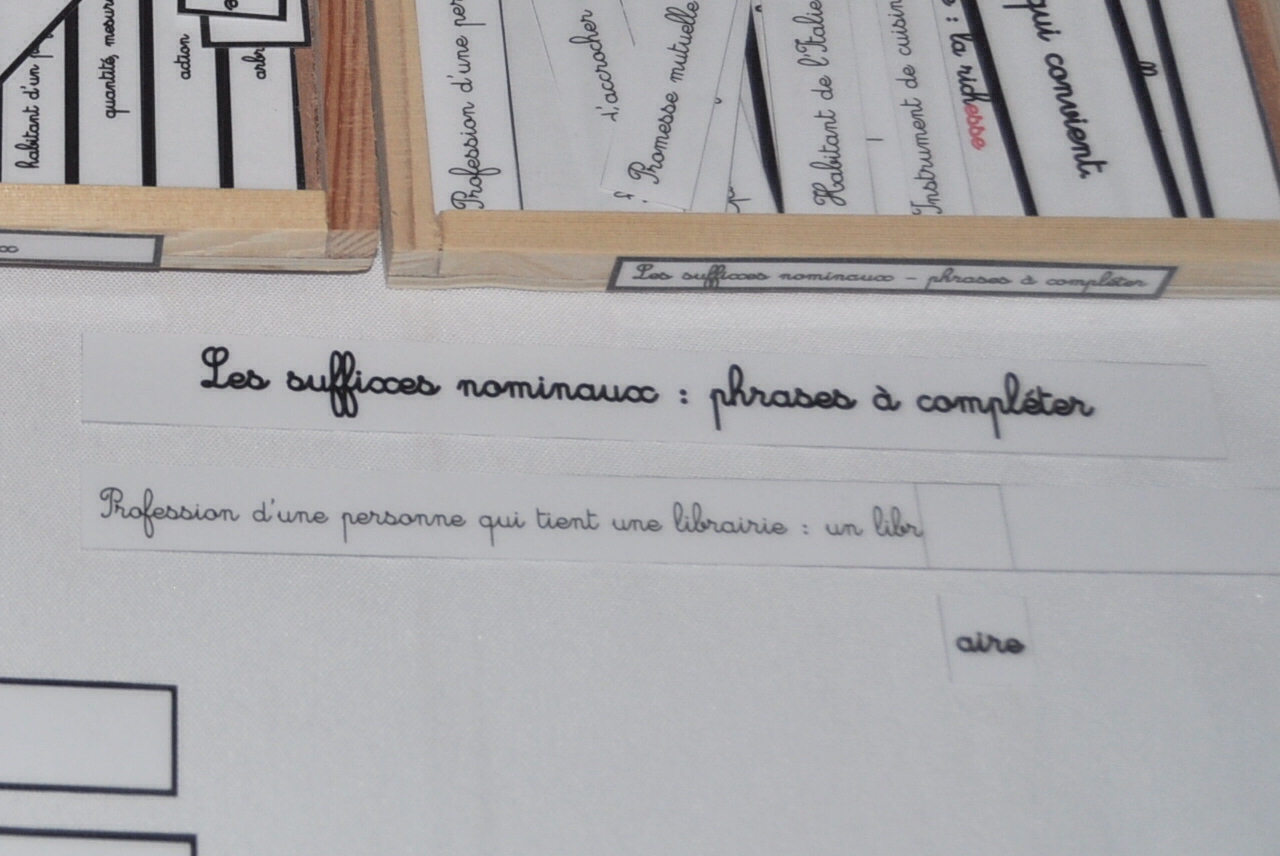 habitant d'un
quantité, mesur
action
arbr
Profession d'une per
d'accrocher
Promesse mutuelle
Habitant de l'Italie
Instrument de cuisin
: la richesse
qui convient.
Les suffixes nominaux - phrases à compléter
Les suffixes nominaux : phrases à compléter
Profession d'une personne qui tient une librairie : un libr
aire